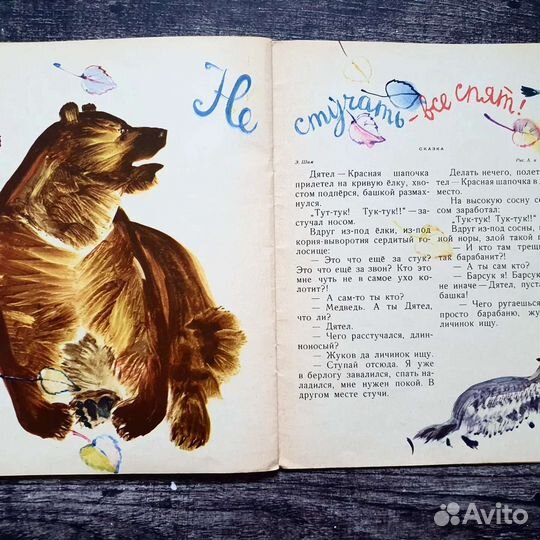 Не
стучать - все спят!
СКАЗКА
Э. Шим
Рис. А. и
Дятел — Красная шапочка
прилетел на кривую ёлку, хво-
стом подпёрся, башкой размах-
нулся.
„Тут-тук! Тук-тук!!" — за-
стучал носом.
Вдруг из-под ёлки, из-под
кория-выворотня сердитый го-
лосище:
— Это что ещё за стук?
Это что ещё за звон? Кто это
мне чуть не в самое ухо ко-
лотит?!
— А сам-то ты кто?
— Медведь. А ты Дятел,
что ли?
— Дятел.
— Чего расстучался, длин-
ноносый?
— Жуков да личинок ищу.
— Ступай отсюда. Я уже
в берлогу завалился, спать на-
ладился, мне нужен покой. В
другом месте стучи.
Делать нечего, полет
тел — Красная шапочка в
место.
На высокую сосну се
сом заработал:
„Тук-тук! Тук-тук!!"
Вдруг из-под сосны,
ной норы, злой такой г
— И кто там трещи
так барабанит?!
— А ты сам кто?
— Барсук я! Барсук
не иначе — Дятел, пуста
башка!
— Чего ругаешься,
просто барабаню, жу
личинок ищу.
Avito